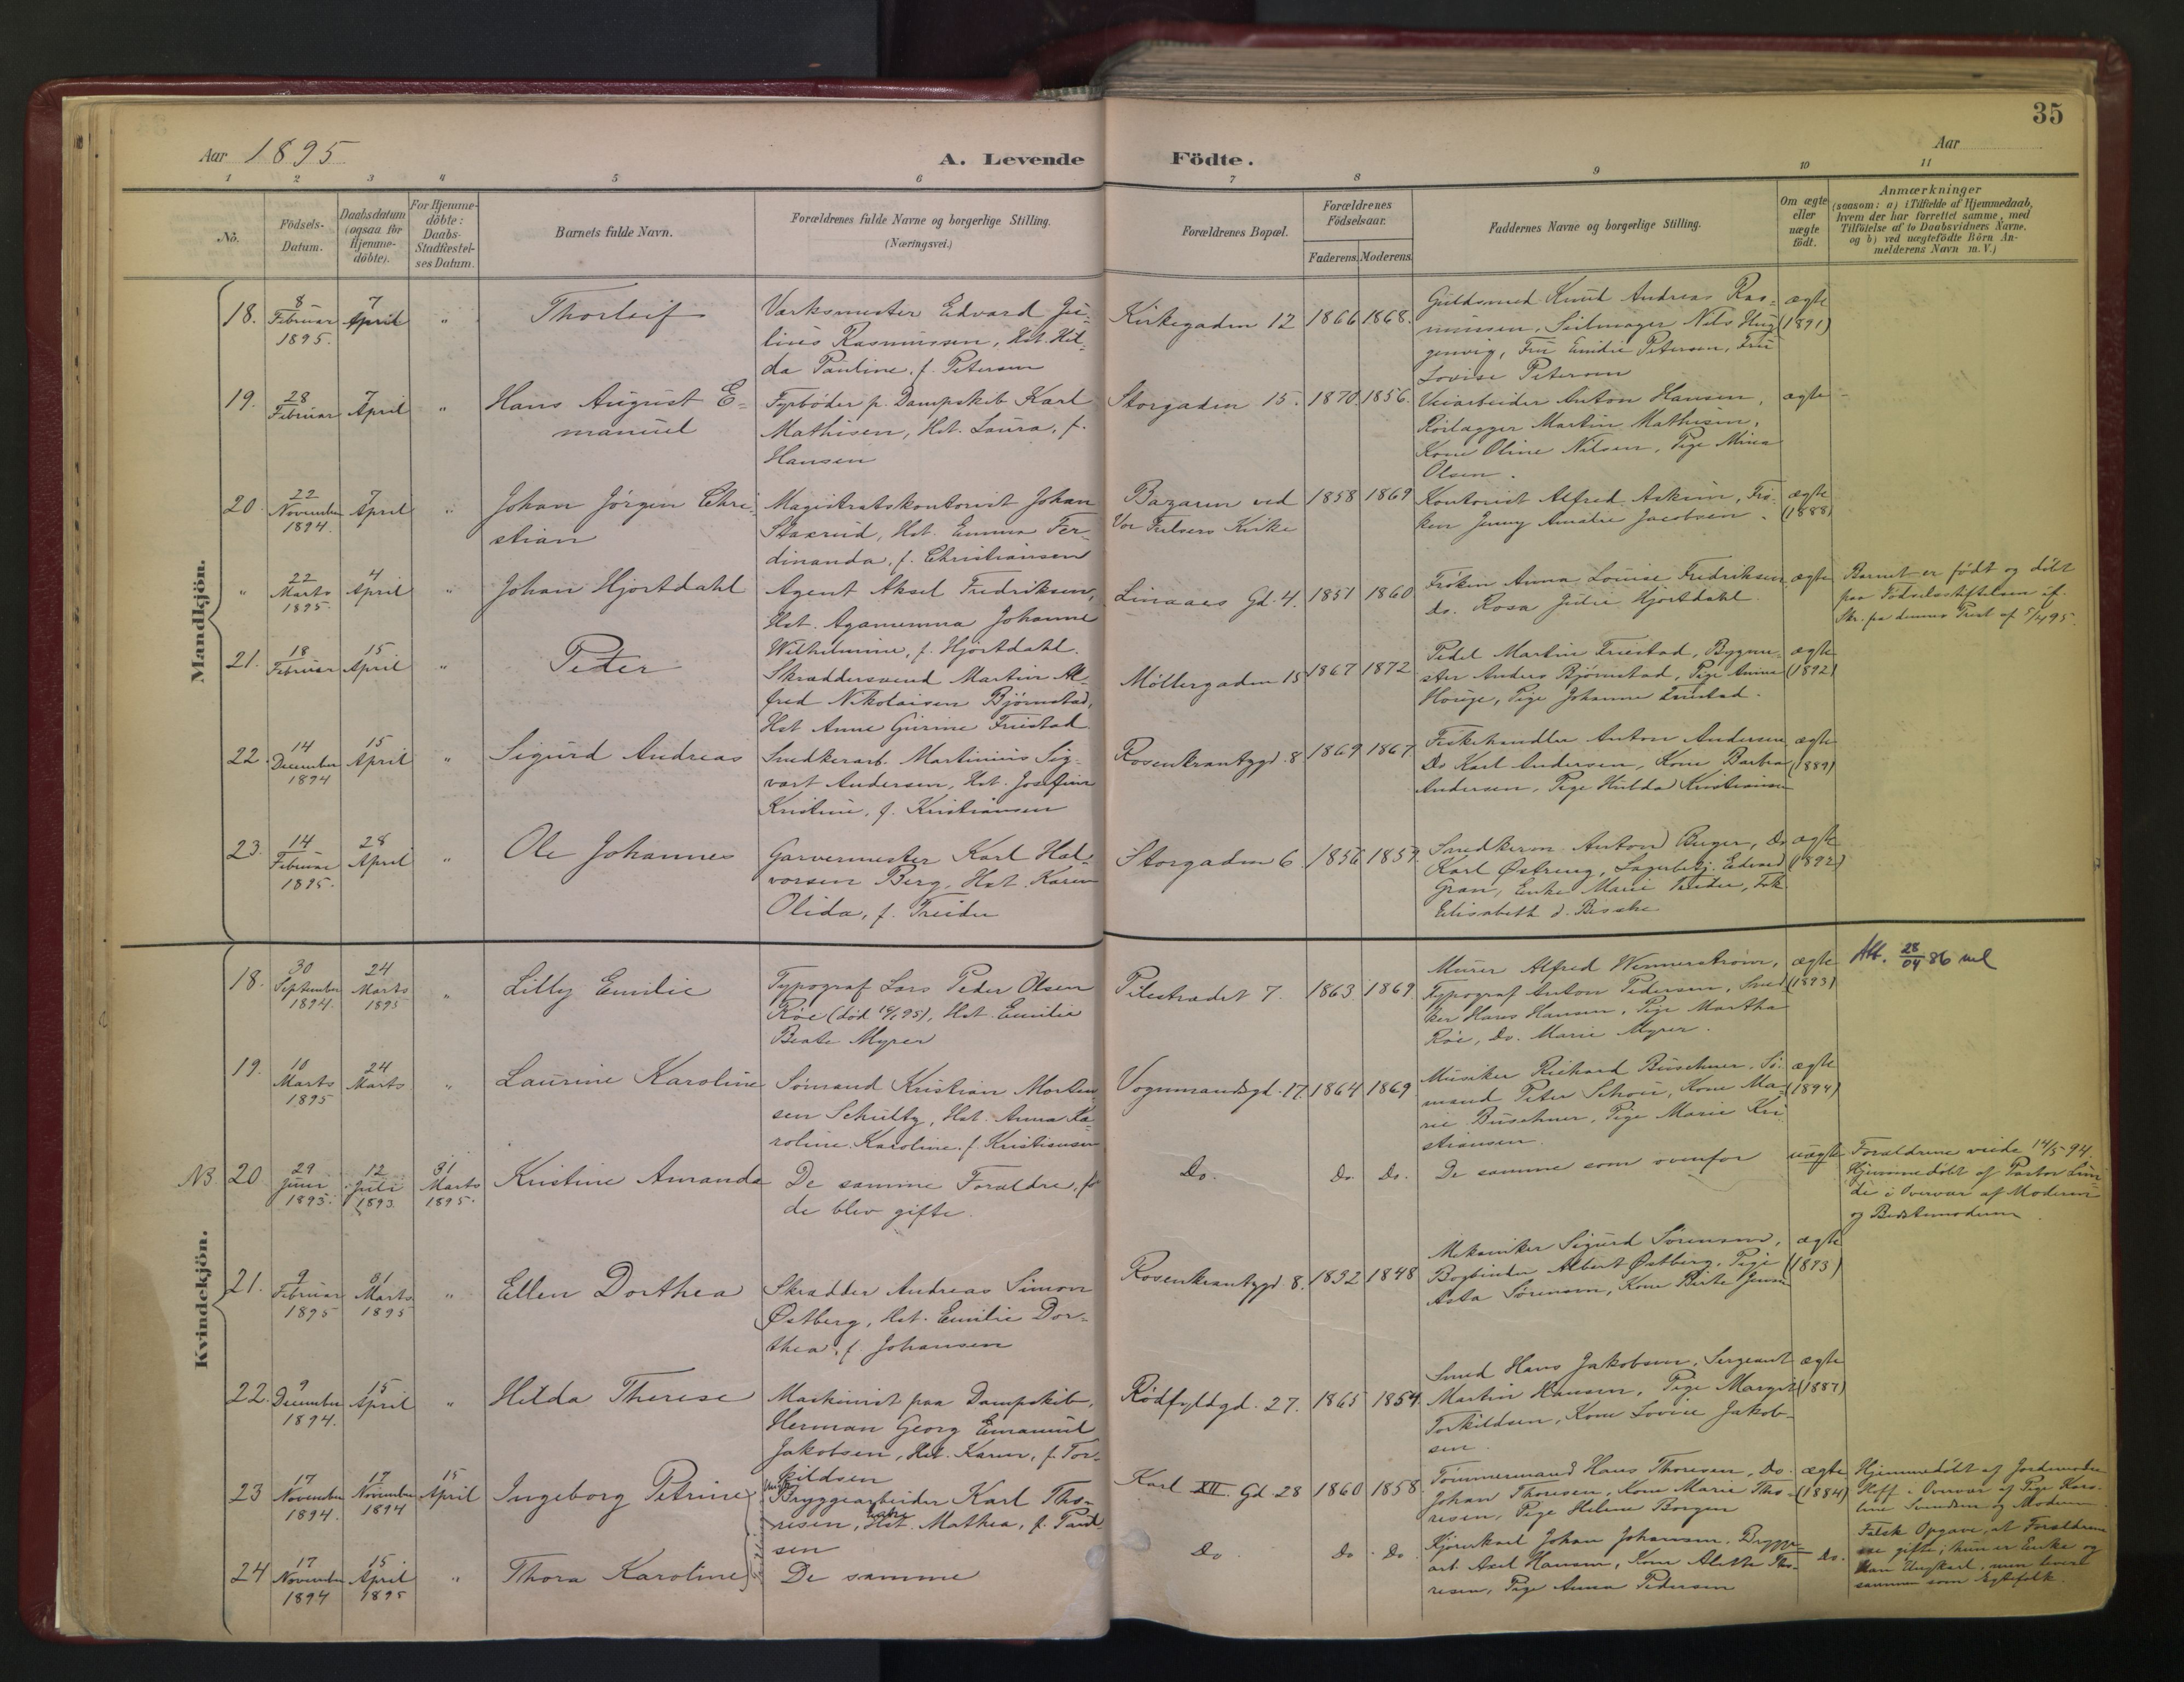 35
Aar 1895
A. Levende Födte.
Aar
1 2 3 4 5 6 7 8 9 10 11
No.
Födsels-Datum.
Daabsdatum (ogsaa for Hjemme-döbte).
For Hjemme-döbte: Daabs-Stadfæstel-ses Datum.
Barnets fulde Navn.
Forældrenes fulde Navne og borgerlige Stilling.
(Næringsvei.)
Forældrenes Bopæl.
Forældrenes Födselsaar.
Faderens. Moderens.
Faddernes Navne og borgerlige Stilling.
Om ægte eller uægte födt.
Anmærkninger
(saasom: a) i Tilfælde af Hjemmedaab,
hvem der har forrettet samme, med
Tilföielse af to Daabsvidners Navne.
og b) ved uægtefödte Börn An-
melderens Navn m. V.)
Mandkjön.
18. 8 Februar 1895. 7 April " Thorleif
Værksmester Edvard Ju-
lius Rasmussen, Hst. Hil-
da Pauline, f. Petersen
Kirkegaden 12 1866 1868.
Guldsmed Knud Andreas Ras-
mussen, Seilmager Nils
Fru Emilie Petersen, Fru
Lovise Petersen
ægte (1891)
19. 28 Februar 7 April " Hans August E-
manuel
Fyrbøder p. Dampskib Karl
Mathisen, Hst. Laura, f.
Hansen
Storgaden 15. 1870. 1856.
Anton Hansen,
Rörlægger Martin Mathisen,
Kone Oline Nilsen, Pige Mina
Olsen.
ægte
20. 22 November 1894. 7 April " Johan Jørgen Chri-
stian
Magistratskontorist Johan
Staxrud, Hst. Emma Fer-
dinanda, f. Christiansen
Bazaren ved
Vor Frelsers Kirke
1858 1869
Kontorist Alfred Askim, Frö-
ken Jenny Amalie Jacobsen.
ægte (1888)
" 22 Marts 1895. 4 April " Johan Hjortdahl
Agent Aksel Fredriksen,
Hst. Agamemna Johanne
Wilhelmine, f. Hjortdahl.
Linaaes Gd. 4. 1851 1860
Frøken Anna Louise Fredriksen
do. Rosa Julie Hjortdahl
ægte
Barnet er født og døbt
paa Fødselsstiftelsen if.
Skr. fra dennes Præst af 5/4 95.
21. 18 Februar 15 April " Peter
Skræddersvend Martin Al-
fred Nikolaisen Bjørnstad,
Hst Anne Gurine Fruestad
Möllergaden 15 1867 1872
Pedel Martin Fruestad, Bygme-
ster Anders Bjørnstad, Pige Anine
Houge, Pige Johanne Fruestad.
ægte (1892)
22. 14 December 1894 15 April " Sigurd Andreas
Snedkerarb. Martinius Sig-
vart Andersen, Hst. Josefine
Kristine, f. Kristiansen
Rosenkrantzgd. 8 1869 1867.
Fiskehandler Anton Andersen
Do Karl Andersen, Kone Barbra
Andersen, Pige Hulda Kristiansen
ægte (1889)
23. 14 Februar 1895. 28 April " Ole Johannes
Garvermester Karl Hal-
vorsen Berg, Hst. Karen
Olida, f. Treider
Storgaden 6. 1856 1859.
Anton Buger, Do
Karl Østreng, Edvard
Gran, Enke Marie Treider, Frk
Elisabeth
ægte (1892)
Kvindekjön.
18. 30 September 1894. 24 Marts 1895 " Lilly Emilie
Typograf Lars Peder Olsen
Röe (død 95), Hst. Emilie
Beate Myrer
Pilestrædet 7. 1863. 1869.
Murer Alfred Wennerström,
Typograf Anton Pedersen, Sned-
ker Hans Hansen, Pige Martha
Röe, do. Marie Myrer.
ægte (1893)
Att. 28/04 86
19. 10 Marts 1895 24 Marts " Laurine Karoline
Sömand Kristian Morten-
sen Schultz, Hst. Anna Ka-
roline Karoline, f. Kristiansen
Vognmandsgd. 17. 1864 1869
Musiker Richard Büschner, Sö-
mand Peter Schou, Kone Ma-
rie Büschner, Pige Marie Kri-
stiansen.
ægte (1894)
NB. 20 29 Juni 1893. 12 Juli 1893. 31 Marts 1895. Kristine Amanda
De samme Forældre, før
de blev gifte.
Do. Do. Do.
De samme som ovenfor
uægte
Forældrene viede 14/5 94.
Hjemmedöbt af Pastor Lun-
de i Overvær af Moderen
og Bedstemoderen
21. 9 Februar 1895 31 Marts 1895 " Ellen Dorthea
Skrædder Andreas Simon
Østberg, Hst. Emilie Dor-
thea, f. Johansen
Rosenkrantzgd. 8. 1852 1848
Mekaniker Sigurd Sörensen,
Bogbinder Albert Østberg, Pige
Asta Sörensen, Kone Berte Jensen
ægte (1893)
22. 9 December 1894. 15 April " Hilda Therese
Maskinist paa Dampskib,
Herman Georg Emanuel
Jakobsen, Hst. Karen, f. Tor-
kildsen
Rödfyldgd. 27. 1865 1854
Smed Hans Jakobsen, Sergeant
Martin Hansen, Pige Margit
Torkildsen, Kone Lovise Jakob-
sen.
ægte (1887)
23 17 November 1894. 17 November 1894 15 April Ingeborg Petrine
Bryggearbeider Karl Tho-
resen, Hst. Enke Mathea, f. Paul-
sen
Karl XII. Gd 28 1860 1858.
Tömmermand Hans Thoresen, Do.
Johan Thoresen, Kone Marie Tho-
resen, Pige Helene Borgen
ægte (1884)
Hjemmedöbt af Jordmoder
Hoff i Overvær af Pige Karo-
line Svendsen og Moderen.
24 17 November 1894 15 April 1895 " Thora Karoline
De samme
Do Do. Do
Kjörekarl Johan Johansen, Brygge-
arb. Axel Hansen, Kone Alette Tho-
resen, Pige Anna Pedersen
Do.
Falsk Opgave, at Forældrene
ere gifte; hun er Enke og
han Ungkarl, men levet
sammen som Ægtefolk.